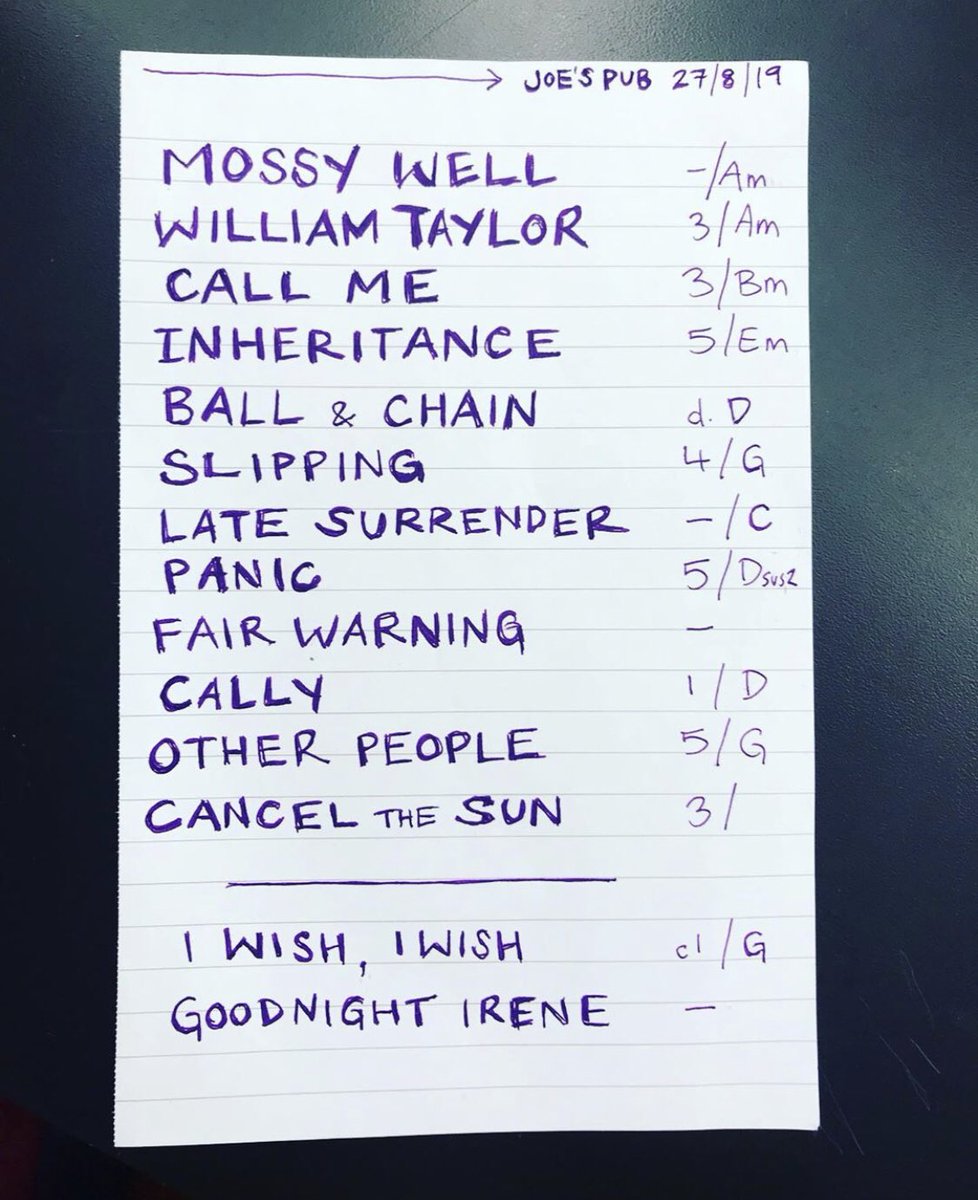 JOE'S PUB 27/8/19
MOSSY WELL -/Am
WILLIAM TAYLOR 3/Am
CALL ME 3/Bm
INHERITANCE 5/Em
BALL & CHAIN d. D
SLIPPING 4/G
LATE SURRENDER -/C
PANIC 5/Dsus2
FAIR WARNING -
CALLY 1/D
OTHER PEOPLE 5/G
CANCEL THE SUN 3/
I WISH, I WISH c1/G
GOODNIGHT IRENE -